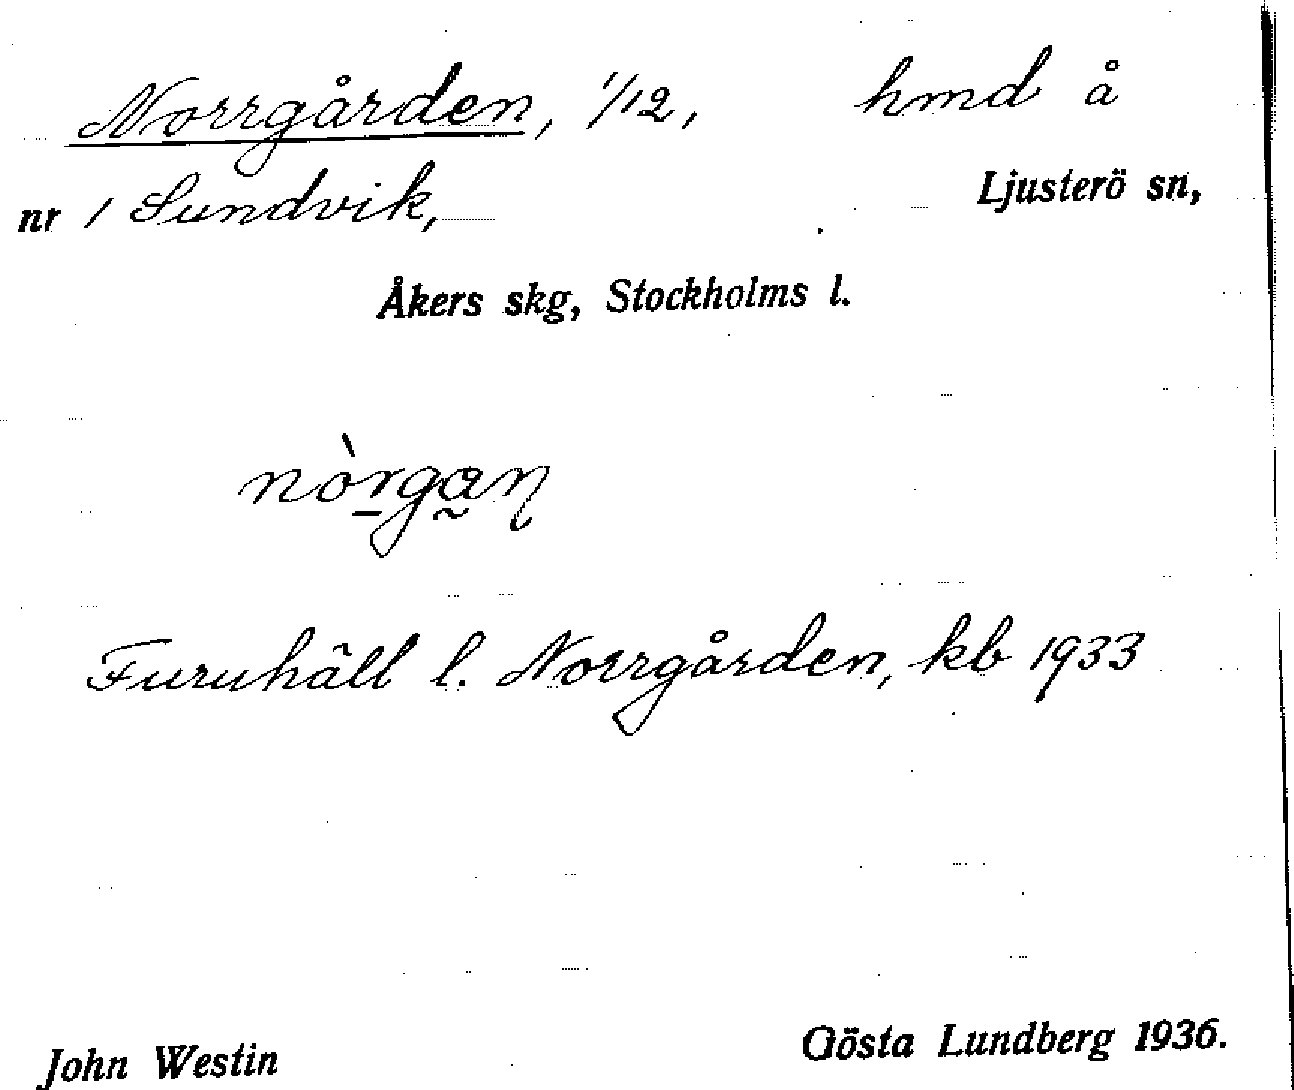 Norrgården, 1/12, hmd å
nr 1 Sundvik, Ljusterö sn,
Åkers skg, Stockholms l.
nòr̲ga̰ɳ
Furuhäll l. Norrgården, kb 1933
John Westin Gösta Lundberg 1936.